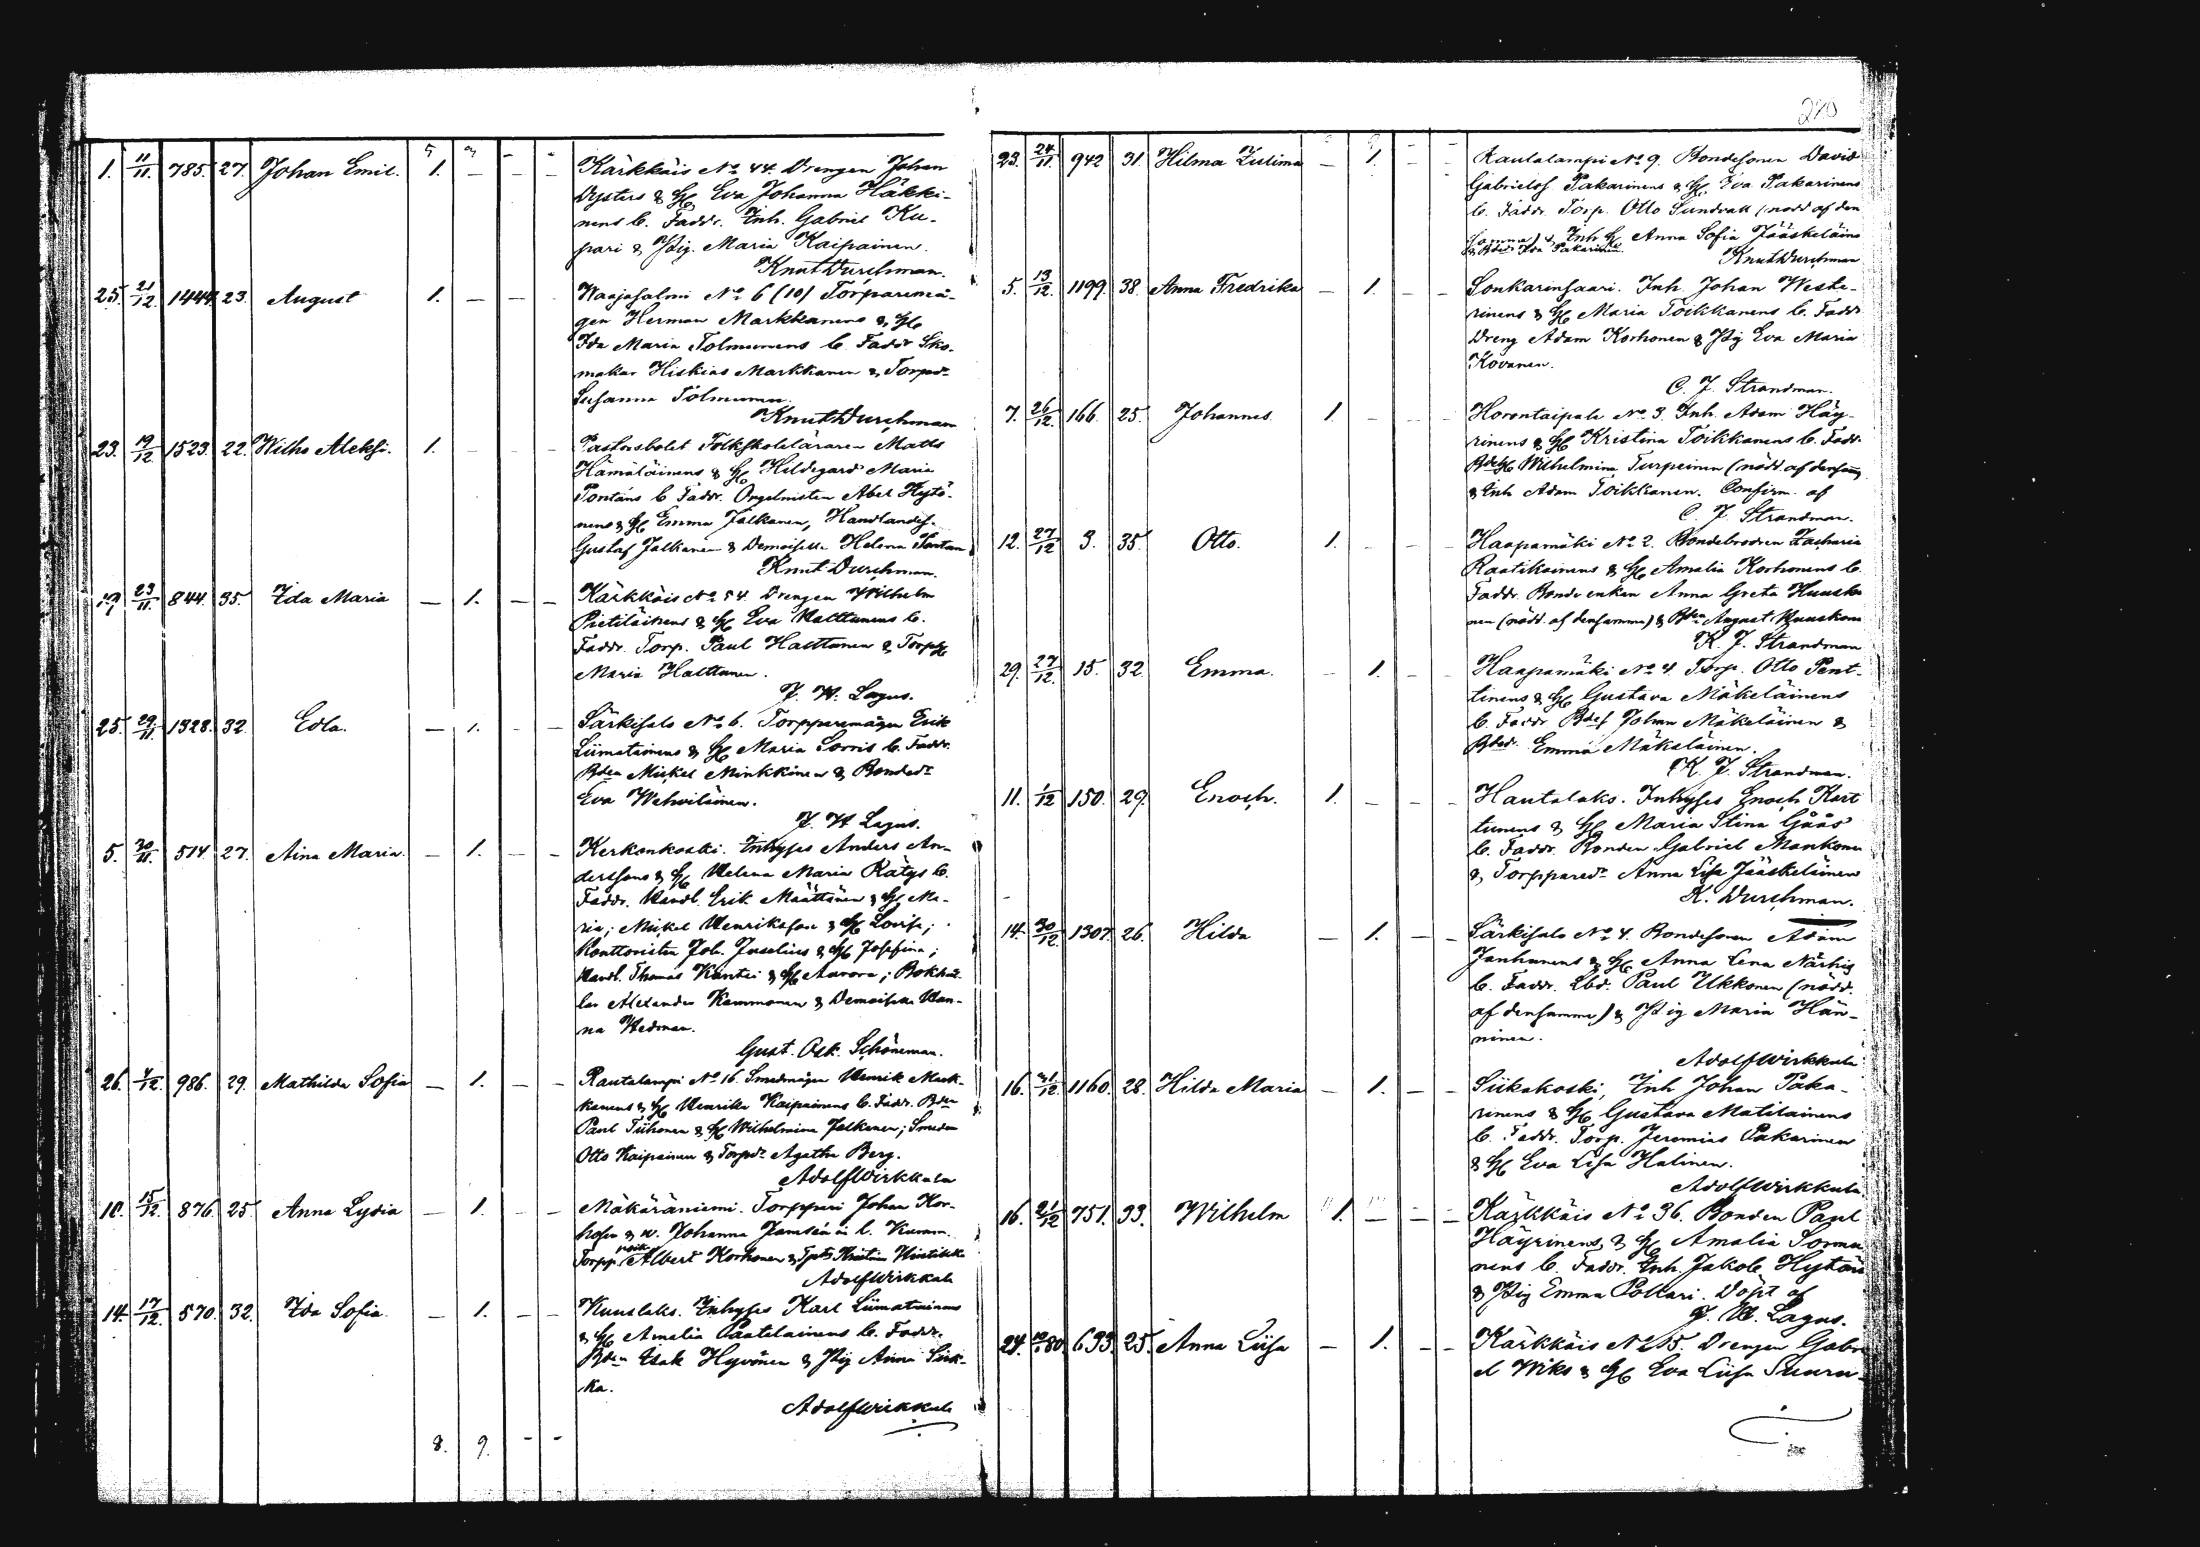 220
5 3 - -
1. 11/11. 785. 27. Johan Emil. 1. — — — Kärkkäis No 44. Drengen Johan
Dysters & H Eva Johanna Häkki-
nens b. Faddr. Inh. Gabriel Ku-
pari & Pig. Maria Kaipainen.
Knut Durchman.
25. 21/12 1444 23. August 1. — — Waajasalmi No 6 (10) Torparemå-
gen Herman Markkanens & H
Ida Maria Tolmunens b. Faddr Sko-
makar Hiskias Markkanen & Torpdr
Susanna Tolmunen.
Knut Durchman
23. 19/12 1523. 22. Wilho Aleksi. 1. - - - Pastorsbolet Folkskoleläraren Matts
Hämäläinens & H Hildegard Maria
Pontáns b Faddr. Orgelnisten Abel Hytö-
nens & H Emma Jalkanen, Handlandes.
Gustaf Jalkanen & Demoiselle Helena Pontan
Knut Durchman.
19 23/11. 844. 35. Ida Maria — 1. — — Kärkkäis No 54. Drengen Wilhelm
Pietiläinens & H Eva Halttunens b.
Faddr. Torp. Paul Halttunen & Torp H
Maria Halttunen.
J. W. Lagus.
25. 29/11. 1328. 32. Edla. — 1. - - Särkisalo No 6. Torpparemågen Erik
Liimatainens & H Maria Sorris b. Faddr.
Bden Mickel Minkkinen & Bondedr
Eva Wehviläinen.
J. W Lagus.
5. 30/11. 514 27. Aina Maria. — 1. — — Kerkonkoski. Inhyses Anders An-
derssons & H Helena Maria Rätys b.
Faddr. Handl. Erik Määttänen & H Ma-
ria; Mickel Henriksson & H Lovisa;
Konttoristen Joh. Juselius & H Josefina;
Handl. Thomas Kantei & H Aurora; Bokhål-
lar Alexander Kammonen & Demoiselle Han-
na Hedman.
Gust. Osk. Schöneman.
26. 7/12. 986. 29. Mathilda Sofia — 1. — — Rautalampi No 16. Smedmågen Henrik Mark-
kanens & H Henrika Kaipainens b. Faddr. Bden
Paul Tiihonen & H Wilhelmina Jalkanen; Smeden
Otto Kaipainen & Torpdr Agatha Berg.
Adolf Wirkkula
10. 15/12. 876. 25. Anna Lydia — 1. — — Mäkäräniemi. Torppari Johan Kor-
hosen & w. Johanna Jamsánin l. Kumm.
Torpp. poik. Albert Korhonen & Tpty Kristiina Hintikka
Adolf Wirkkula
14. 17/12. 570. 32. Ida Sofia. — 1. — — Kuuslaks. Inhyses Karl Liimatainens
& H Amalia Paatelainens b. Faddr.
Bden Isak Hyvönen & Pig Anna Sirk-
ka.
Adolf Wirkkula
8. 9. - -
23. 24/11. 942 31. Hilma Zulima — 1. - - Rautalampi No 9. Bondesonen David
Gabrielss Pakarinens & H. Eva Pakarinens
b. Faddr. Torp. Otto Sundvall (nödd af den
samma) & Inh H Anna Sofia Jääskeläins
& Bdedr Ida Pakarinen
Knut Durchman
5. 13/12. 1199. 38. Anna Fredrika — 1. — — Sonkarinsaari. Inh. Johan Weste-
rinens & H Maria Toikkanens b. Faddr
Dreng Adam Korhonen & Pig Eva Maria
Kovanen.
C. J. Strandman.
7. 26/12. 166. 25. Johannes 1. - - - Horontaipale No 3. Inh. Adam Häy-
rinens & H Kristina Toikkanens b. Faddr.
Wilhelmina Turpeinen (nödd af densam
& Inh Adam Toikkanen. Confirm. af
C. J. Strandman.
12. 27/12 3. 35. Otto. 1. - - - Haapamäki No 2. Bondebrodren Zacharia
Raatikainens & H Amalia Korhonens b.
Faddr. Bonde enkan Anna Greta Huusko
nen (nödd. af densamma) & Bden August Huuskone
K. J. Strandman
29. 27/12. 15. 32. Emma. — 1. - - Haapamäki No 4. Torp. Otto Pent-
tinens & H Gustava Mäkeläinens
b. Faddr Bdes Johan Mäkeläinen &
Bdedr. Emma Mäkeläinen.
K. J. Strandman.
11. 1/12 150. 29. Enoch. 1. - - - Hautolaks. Inhyses Enoch Kart
tunens & H Maria Stina Gåås
b. Faddr. Bonden Gabriel Monkonen
& Torpparedr Anna Lisa Jääskeläinen
K. Durchman.
14. 30/12. 1307. 26. Hilda — 1. — — Särkisalo No 4. Bondesonen Adam
Janhunens & H Anna Lena Närhis
b. Faddr. Lbd. Paul Ukkonen (nödd.
af densamma) & Pig Maria Hän-
ninen.
Adolf Wirkkula
16. 31/12. 1160. 28. Hilda Maria — 1. — — Siikakoski, Inh Johan Paka-
rinens & H Gustava Matilainens
b. Faddr. Torp. Jeremias Pakarinen
& H Eva Lisa Halinen.
Adolf Wirkkula
16. 21/12 751. 33. Wilhelm 1. — — — Kärkkäis No 36. Bonden Paul
Häyrinens & H Amalia Sormu
nens b. Faddr. Inh. Jakob Hytön
& Pig Emma Pollari. Döpt af
J. W. Lagus.
24. 633. 25. Anna Liisa — 1. - - Kärkkäis No 15. Drengen Gabri
el Wiks & H Eva Liisa Suuru